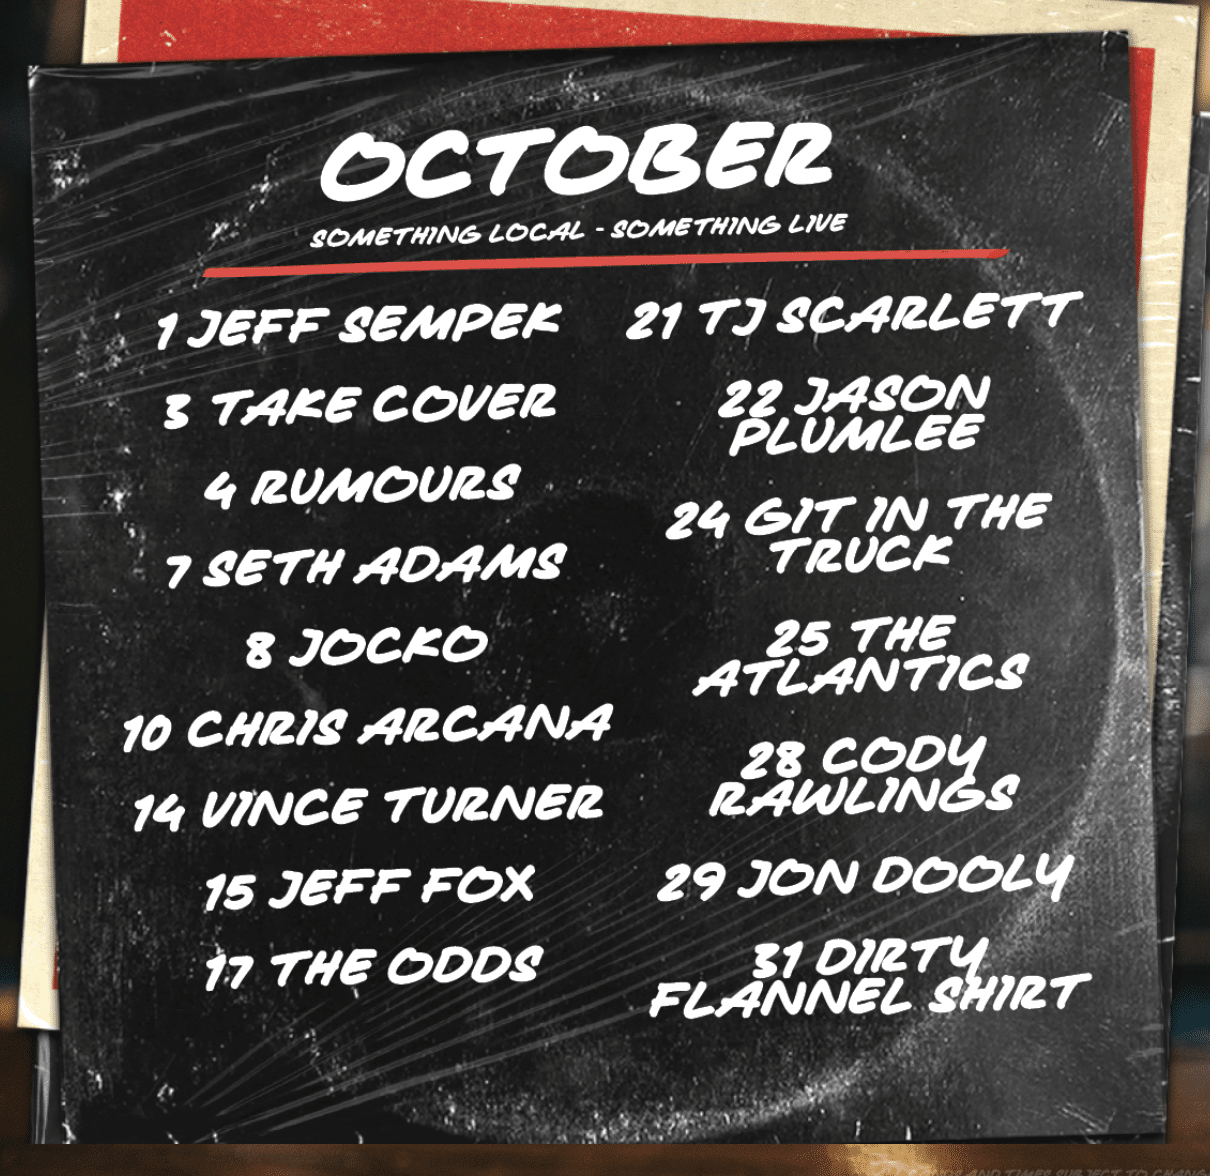 OCTOBER
SOMETHING LOCAL - SOMETHING LIVE
1 JEFF SEMPEK
3 TAKE COVER
4 RUMOURS
7 SETH ADAMS
8 JOCKO
10 CHRIS ARCANA
14 VINCE TURNER
15 JEFF FOX
17 THE ODDS
21 TJ SCARLETT
22 JASON
PLUMLEE
24 GIT IN THE
TRUCK
25 THE
ATLANTICS
28 CODY
RAWLINGS
29 JON DOOLY
31 DIRTY
FLANNEL SHIRT
AND TIMES SUBJECT TO